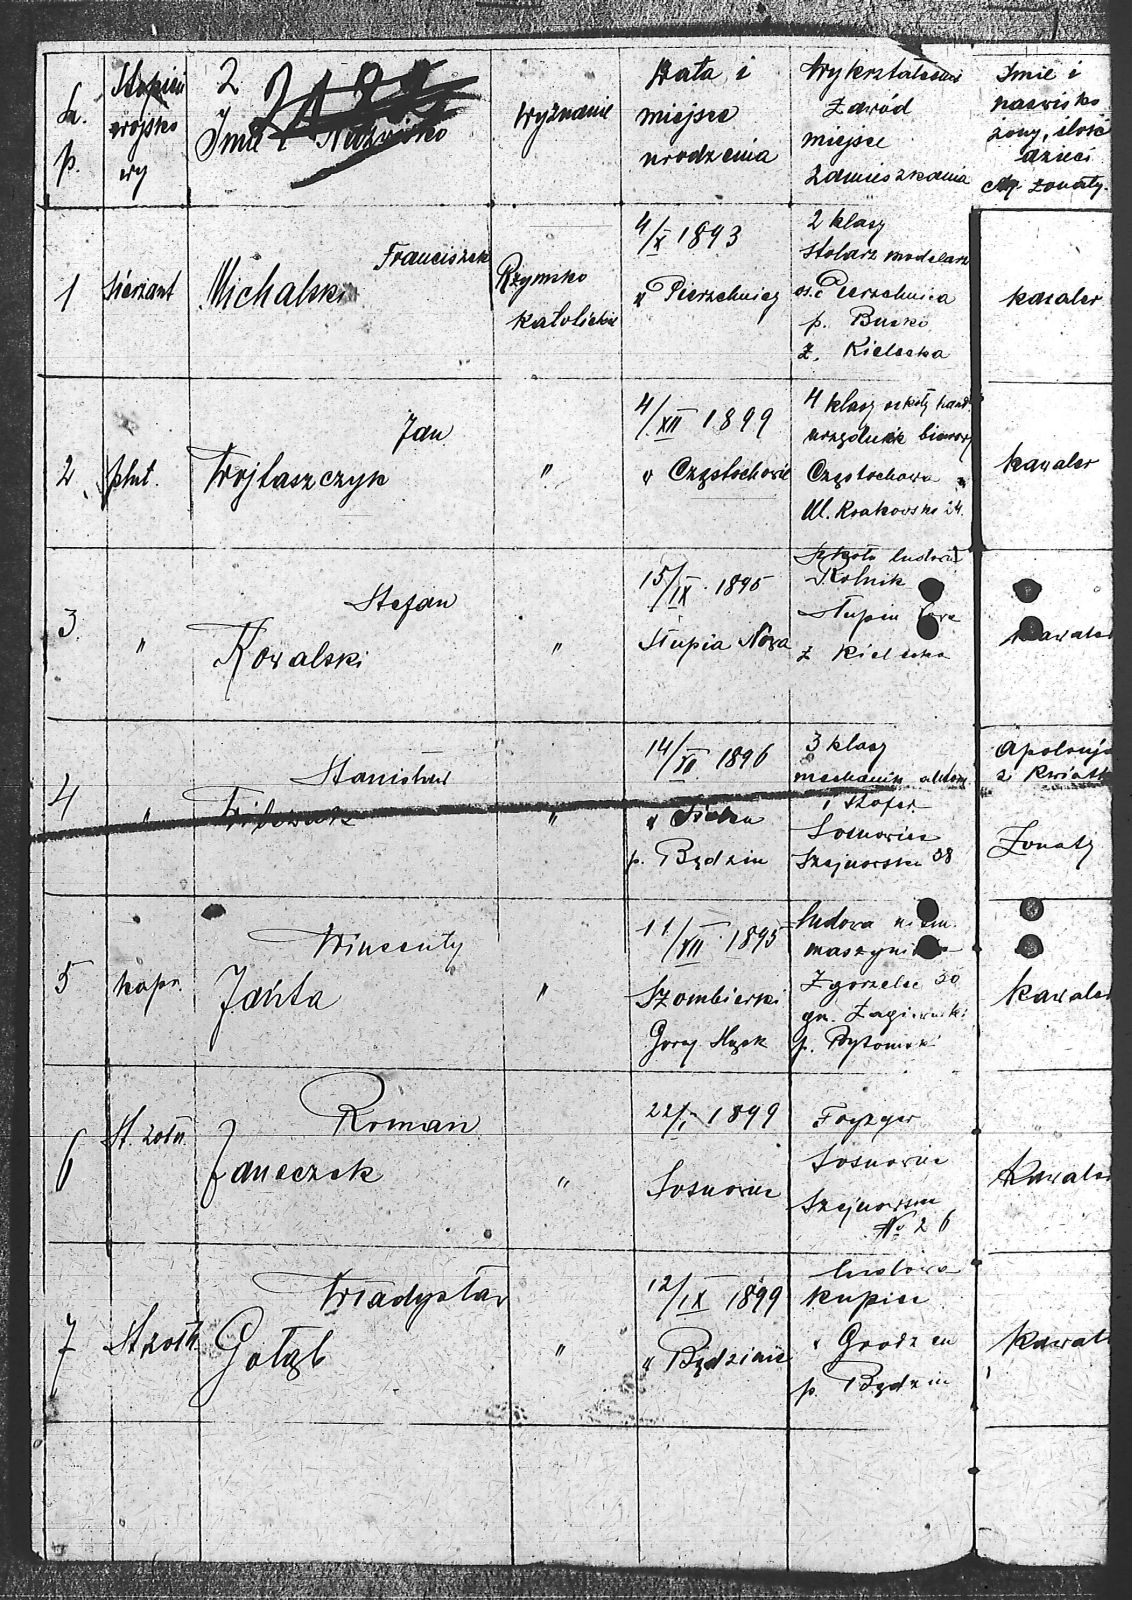 L.
p.
Stopień
wojsko
wy
2
Imię i Nazwisko
Wyznanie
Data i
miejsce
urodzenia
Wykształcenie
Zawód
miejsce
zamieszkania
Imię i
nazwisko
żony, ilość
dzieci
czy żonaty.
1
sierżant
Franciszek
Michalski
Rzymsko
katolickie
4/X 1893
w Pierzchnicy
2 klasy
Stolarz modelarz
os. Pierzchnica
p. Busko
z. Kielecka
kawaler
2
plut.
Jan
Wojtaszczyk
"
4/XII 1899
w Częstochowie
4 klasy szkoły hand.
urzędnik biurowy
Częstochowa
Ul. Krakowska 24.
kawaler
3.
"
Stefan
Kowalski
"
15/IX. 1895
Słupia Nowa
Szkoła ludowa
Rolnik
Słupia
z Kielecka
kawaler
4
"
Stanisław
"
14/XI 1896
p. Będzin
3 klasy
mechanik
i szofer
Sosnowiec
38
Apolonja
z
Żonaty
5
kapr.
Wincenty
Jańta
"
11/VII. 1895
Szombierki
Gorny Śląsk
ludowa niem.
Zgorzelec 30
gn.
p. Bytomski
kawaler
6
St. żołn.
Roman
Janeczek
"
22/I 1899
Sosnowiec
Fryzyer
Sosnowiec
№ 26
Kawaler
7
St. żołn.
Władysław
Gołąb
"
12/IX 1899
w Będzinie
ludowa
kupiec
Grodziec
p. Będzin
kawaler